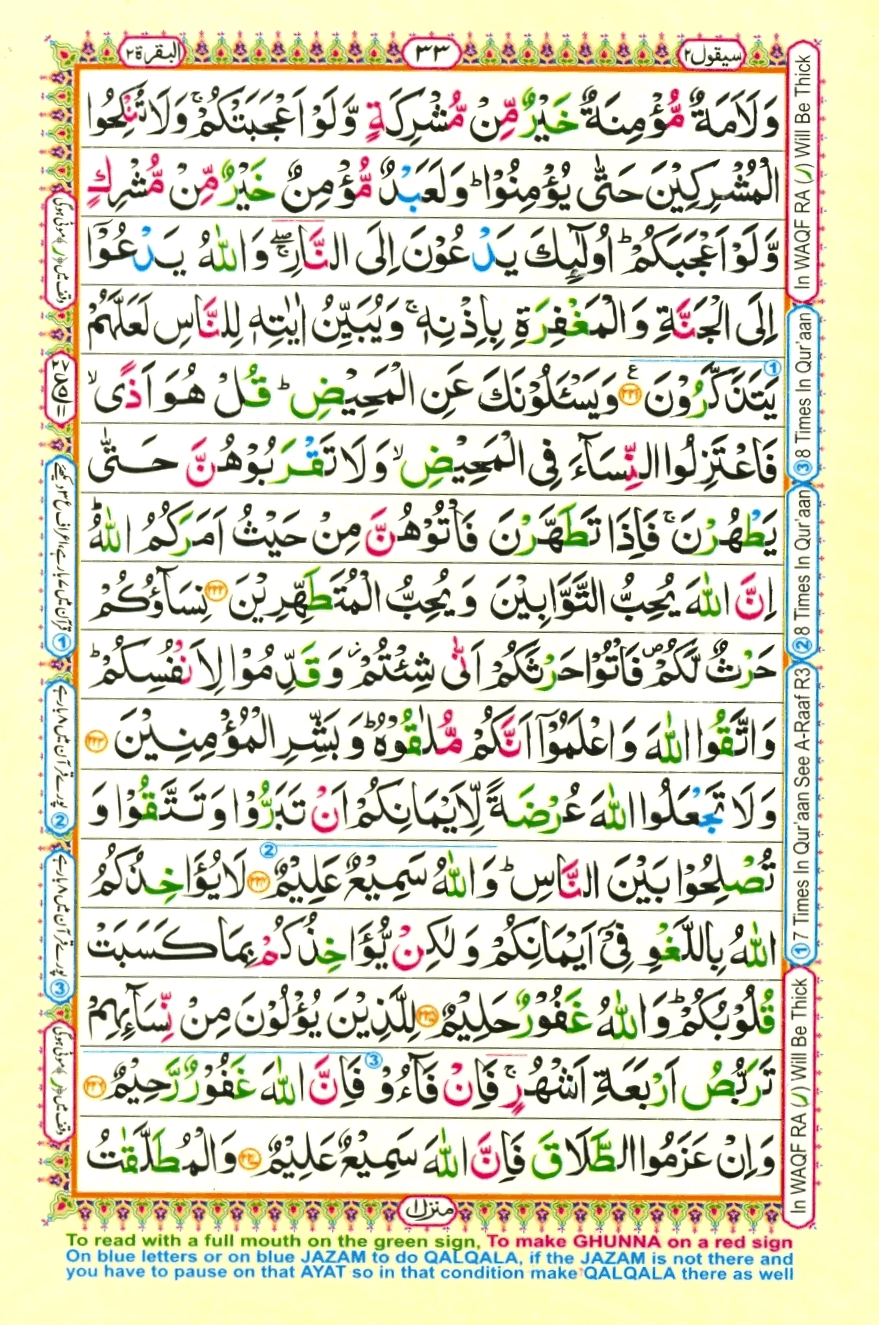 البقرة ٢
٣٣
سيقول ٢
وَلَاَمَةٌ مُّؤْمِنَةٌ خَيْرٌ مِّنْ مُّشْرِكَةٍ وَّلَوْ اَعْجَبَتْكُمْ ۚ وَلَا تُنْكِحُوا
الْمُشْرِكِيْنَ حَتّٰى يُؤْمِنُوْا ؕ وَلَعَبْدٌ مُّؤْمِنٌ خَيْرٌ مِّنْ مُّشْرِكٍ
وَّلَوْ اَعْجَبَكُمْ ؕ اُولٰٓئِكَ يَدْعُوْنَ اِلَى النَّارِ ۖۚ وَاللّٰهُ يَدْعُوْٓا
اِلَى الْجَنَّةِ وَالْمَغْفِرَةِ بِاِذْنِهٖ ۚ وَيُبَيِّنُ اٰيٰتِهٖ لِلنَّاسِ لَعَلَّهُمْ
يَتَذَكَّرُوْنَ ﴿٢٢١﴾ ع وَيَسْـَٔلُوْنَكَ عَنِ الْمَحِيْضِ ؕ قُلْ هُوَ اَذًى ۙ
فَاعْتَزِلُوا النِّسَآءَ فِى الْمَحِيْضِ ۙ وَلَا تَقْرَبُوْهُنَّ حَتّٰى
يَطْهُرْنَ ۚ فَاِذَا تَطَهَّرْنَ فَاْتُوْهُنَّ مِنْ حَيْثُ اَمَرَكُمُ اللّٰهُ ؕ
اِنَّ اللّٰهَ يُحِبُّ التَّوَّابِيْنَ وَيُحِبُّ الْمُتَطَهِّرِيْنَ ﴿٢٢٢﴾ نِسَآؤُكُمْ
حَرْثٌ لَّكُمْ ۪ فَاْتُوْا حَرْثَكُمْ اَنّٰى شِئْتُمْ ۫ وَقَدِّمُوْا لِاَنْفُسِكُمْ ؕ
وَاتَّقُوا اللّٰهَ وَاعْلَمُوْٓا اَنَّكُمْ مُّلٰقُوْهُ ؕ وَبَشِّرِ الْمُؤْمِنِيْنَ ﴿٢٢٣﴾
وَلَا تَجْعَلُوا اللّٰهَ عُرْضَةً لِّاَيْمَانِكُمْ اَنْ تَبَرُّوْا وَتَتَّقُوْا وَ
تُصْلِحُوْا بَيْنَ النَّاسِ ؕ وَاللّٰهُ سَمِيْعٌ عَلِيْمٌ ﴿٢٢٤﴾ لَا يُؤَاخِذُكُمُ
اللّٰهُ بِاللَّغْوِ فِىْٓ اَيْمَانِكُمْ وَلٰكِنْ يُّؤَاخِذُكُمْ بِمَا كَسَبَتْ
قُلُوْبُكُمْ ؕ وَاللّٰهُ غَفُوْرٌ حَلِيْمٌ ﴿٢٢٥﴾ لِلَّذِيْنَ يُؤْلُوْنَ مِنْ نِّسَآئِهِمْ
تَرَبُّصُ اَرْبَعَةِ اَشْهُرٍ ۚ فَاِنْ فَآءُوْ فَاِنَّ اللّٰهَ غَفُوْرٌ رَّحِيْمٌ ﴿٢٢٦﴾
وَاِنْ عَزَمُوا الطَّلَاقَ فَاِنَّ اللّٰهَ سَمِيْعٌ عَلِيْمٌ ﴿٢٢٧﴾ وَالْمُطَلَّقٰتُ
منزل ١
In WAQF RA (ر) Will Be Thick
③ 8 Times In Qur'aan
② 8 Times In Qur'aan
① 7 Times In Qur'aan See A-Raaf R3
In WAQF RA (ر) Will Be Thick
وقف میں ﴿ر﴾ موٹی ہوگی
② پورے قرآن میں ۸ بار ہے
③ پورے قرآن میں ۸ بار ہے
وقف میں ﴿ر﴾ موٹی ہوگی
To read with a full mouth on the green sign, To make GHUNNA on a red sign
On blue letters or on blue JAZAM to do QALQALA, if the JAZAM is not there and
you have to pause on that AYAT so in that condition make QALQALA there as well